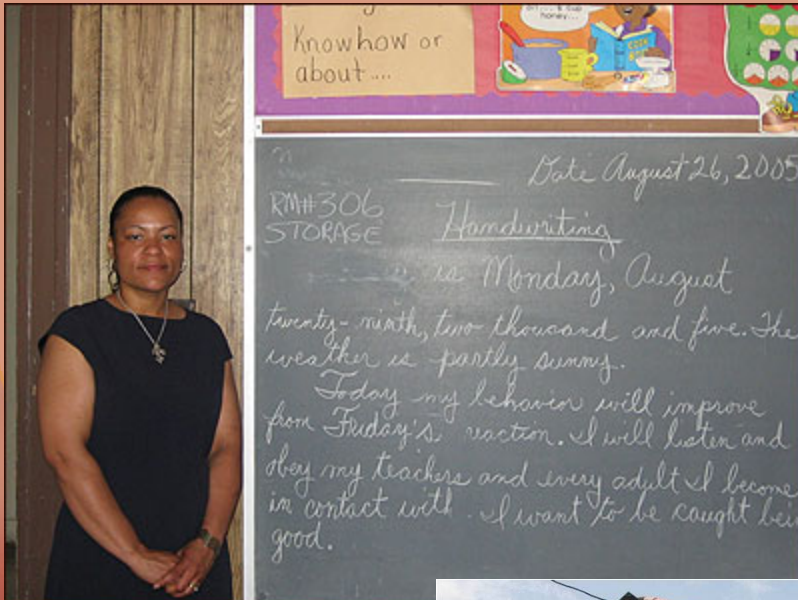 honey...
Know how or
about....
Date August 26, 2005
RM#306
STORAGE
Handwriting
is Monday, August
twenty-ninth, two thousand and five. The
weather is partly sunny.
Today my behavior will improve
from Friday's reaction. I will listen and
obey my teachers and every adult I become
in contact with. I want to be caught
good.